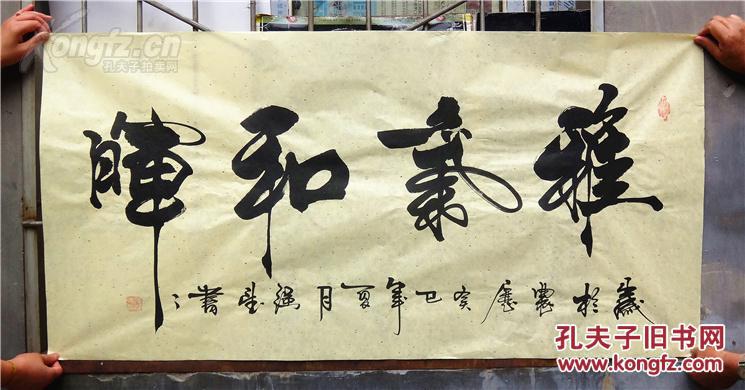 Kongfz.cn
孔夫子拍卖网
雅氣和暉
歲於農歷癸巳年夏月書
孔夫子旧书网
WWW.KONGFZ.COM